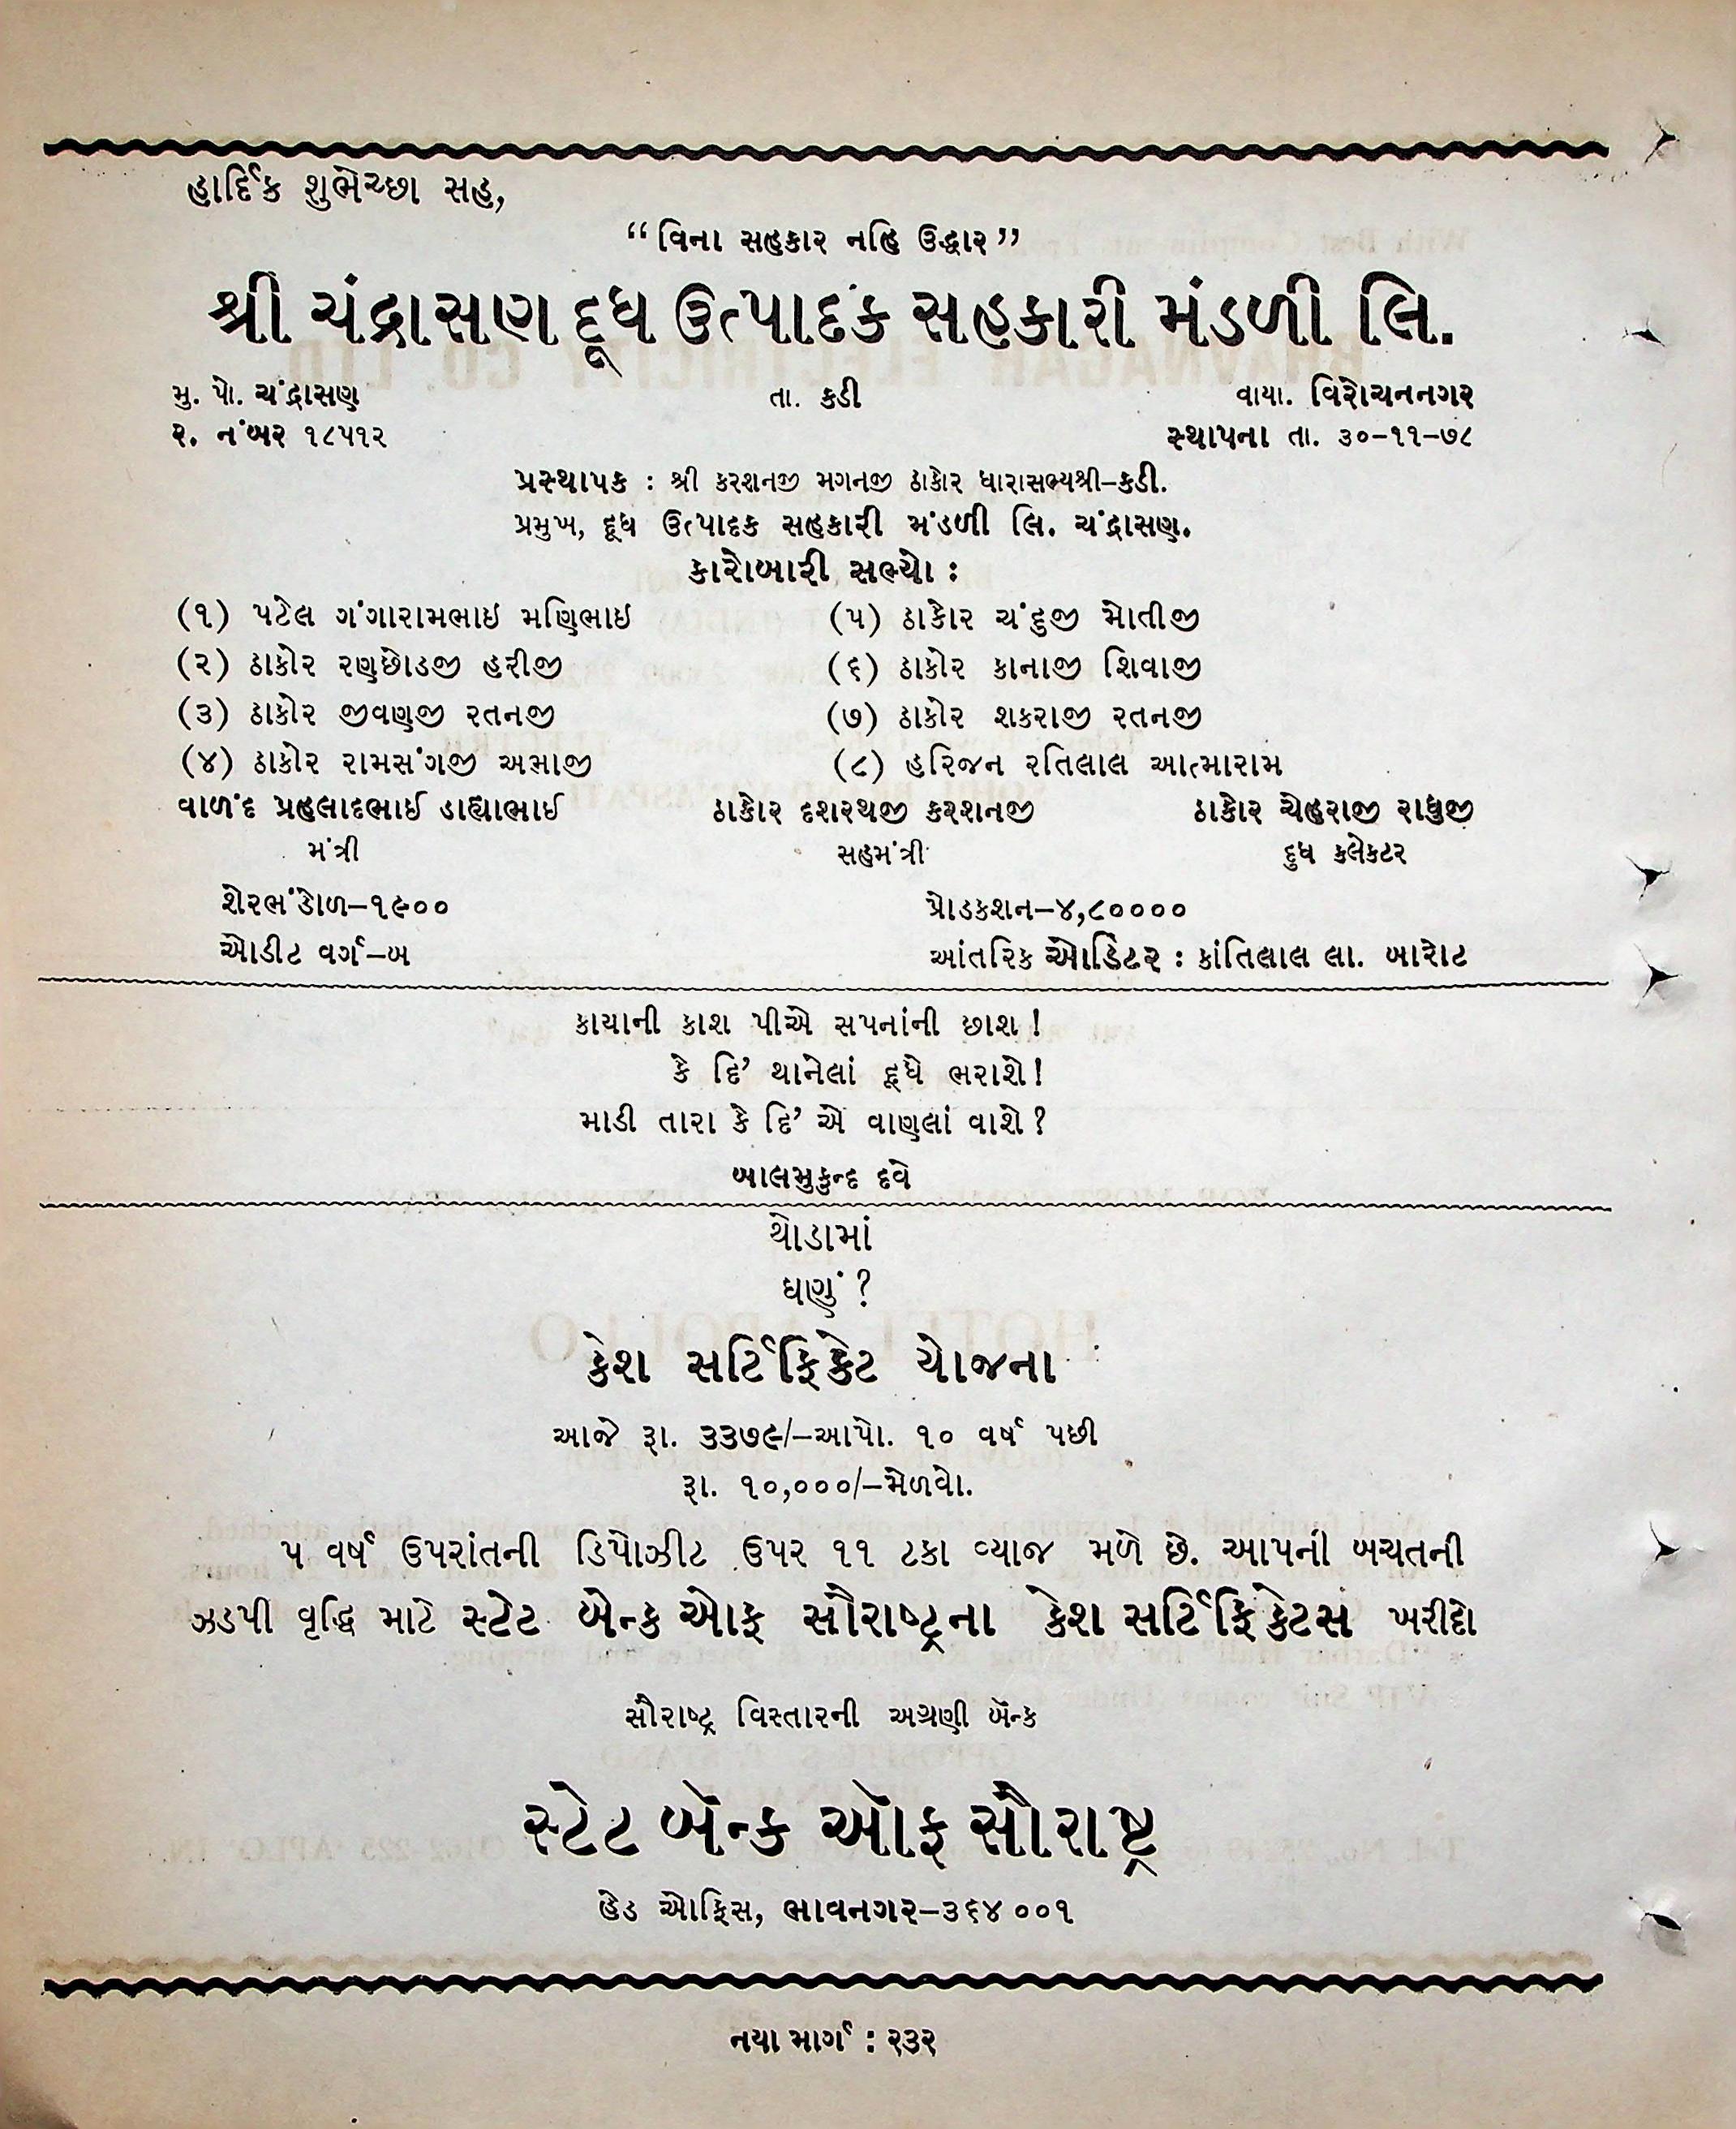 હાર્દિક શુભેચ્છા સહ,
“વિના સહકાર નહિ ઉદ્ધાર”
શ્રી ચંદ્રાસણ દૂધ ઉત્પાદક સહકારી મંડળી લિ.
મુ. પો. ચંદ્રાસણ તા. કડી વાયા. વિરોચનનગર
ર. નંબર ૧૮૫૧૨ સ્થાપના તા. ૩૦-૧૧-૭૮
પ્રસ્થાપક : શ્રી કરશનજી મગનજી ઠાકોર ધારાસભ્યશ્રી-કડી.
પ્રમુખ, દૂધ ઉત્પાદક સહકારી મંડળી લિ. ચંદ્રાસણ.
કારોબારી સભ્યો :
(૧) પટેલ ગંગારામભાઇ મણિભાઇ (૫) ઠાકોર ચંદુજી મોતીજી
(૨) ઠાકોર રણછોડજી હરીજી (૬) ઠાકોર કાનાજી શિવાજી
(૩) ઠાકોર જીવણજી રતનજી (૭) ઠાકોર શકરાજી રતનજી
(૪) ઠાકોર રામસંગજી અમાજી (૮) હરિજન રતિલાલ આત્મારામ
વાળંદ પ્રહલાદભાઈ ડાહ્યાભાઈ ઠાકોર દશરથજી કરશનજી ઠાકોર ચેહરાજી રાધુજી
મંત્રી સહમંત્રી દુધ કલેકટર
શેરભંડોળ-૧૯૦૦ પ્રોડકશન-૪,૮૦૦૦૦
ઓડીટ વર્ગ-બ આંતરિક ઓડિટર : કાંતિલાલ લા. બારોટ
કાયાની કાશ પીએ સપનાંની છાશ !
કે દિ’ થાનેલાં દૂધે ભરાશે !
માડી તારા કે દિ’ એ વાણલાં વાશે ?
બાલમુકુન્દ દવે
થોડામાં
ઘણું ?
કેશ સર્ટિફિકેટ યોજના
આજે રૂા. ૩૩૭૯/-આપો. ૧૦ વર્ષ પછી
રૂા. ૧૦,૦૦૦/-મેળવો.
૫ વર્ષ ઉપરાંતની ડિપોઝીટ ઉપર ૧૧ ટકા વ્યાજ મળે છે. આપની બચતની
ઝડપી વૃદ્ધિ માટે સ્ટેટ બેન્ક ઓફ સૌરાષ્ટ્રના કેશ સર્ટિફિકેટસ ખરીદો
સૌરાષ્ટ્ર વિસ્તારની અગ્રણી બૅન્ક
સ્ટેટ બૅન્ક ઑફ સૌરાષ્ટ્ર
હેડ ઓફિસ, ભાવનગર-૩૬૪ ૦૦૧
નયા માર્ગ : ૨૩૨